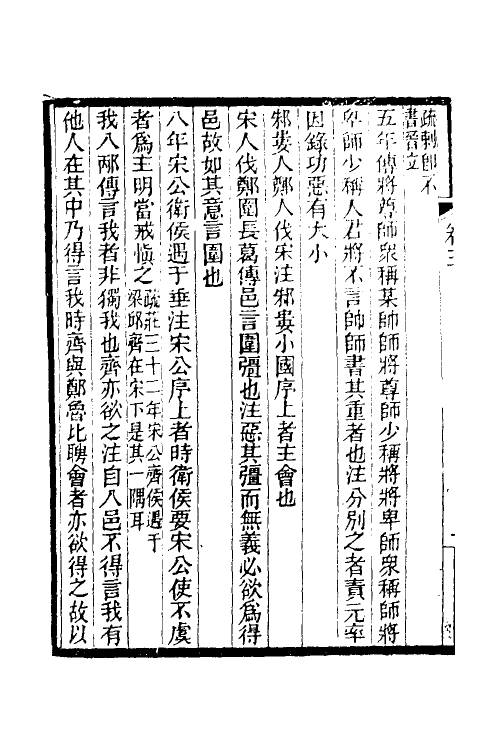 疏剌卽不
書晉立
五年傳將尊師衆稱某帥師將尊師少稱將將卑師衆稱師將
卑師少稱人君將不言帥師書其重者也注分別之者責元率
因錄功惡有大小
邾婁人鄭人伐宋注邾婁小國序上者主會也
宋人伐鄭圍長葛傳邑言圍彊也注惡其彊而無義必欲爲得
邑故如其意言圍也
八年宋公衛侯遇于垂注宋公序上者時衛侯要宋公使不虞
者爲主明當戒愼之疏莊三十二年宋公齊侯遇于梁邱齊在宋下是其一隅耳
我入邴傳言我者非獨我也齊亦欲之注自入邑不得言我有
他人在其中乃得言我時齊與鄭魯比聘會者亦欲得之故以